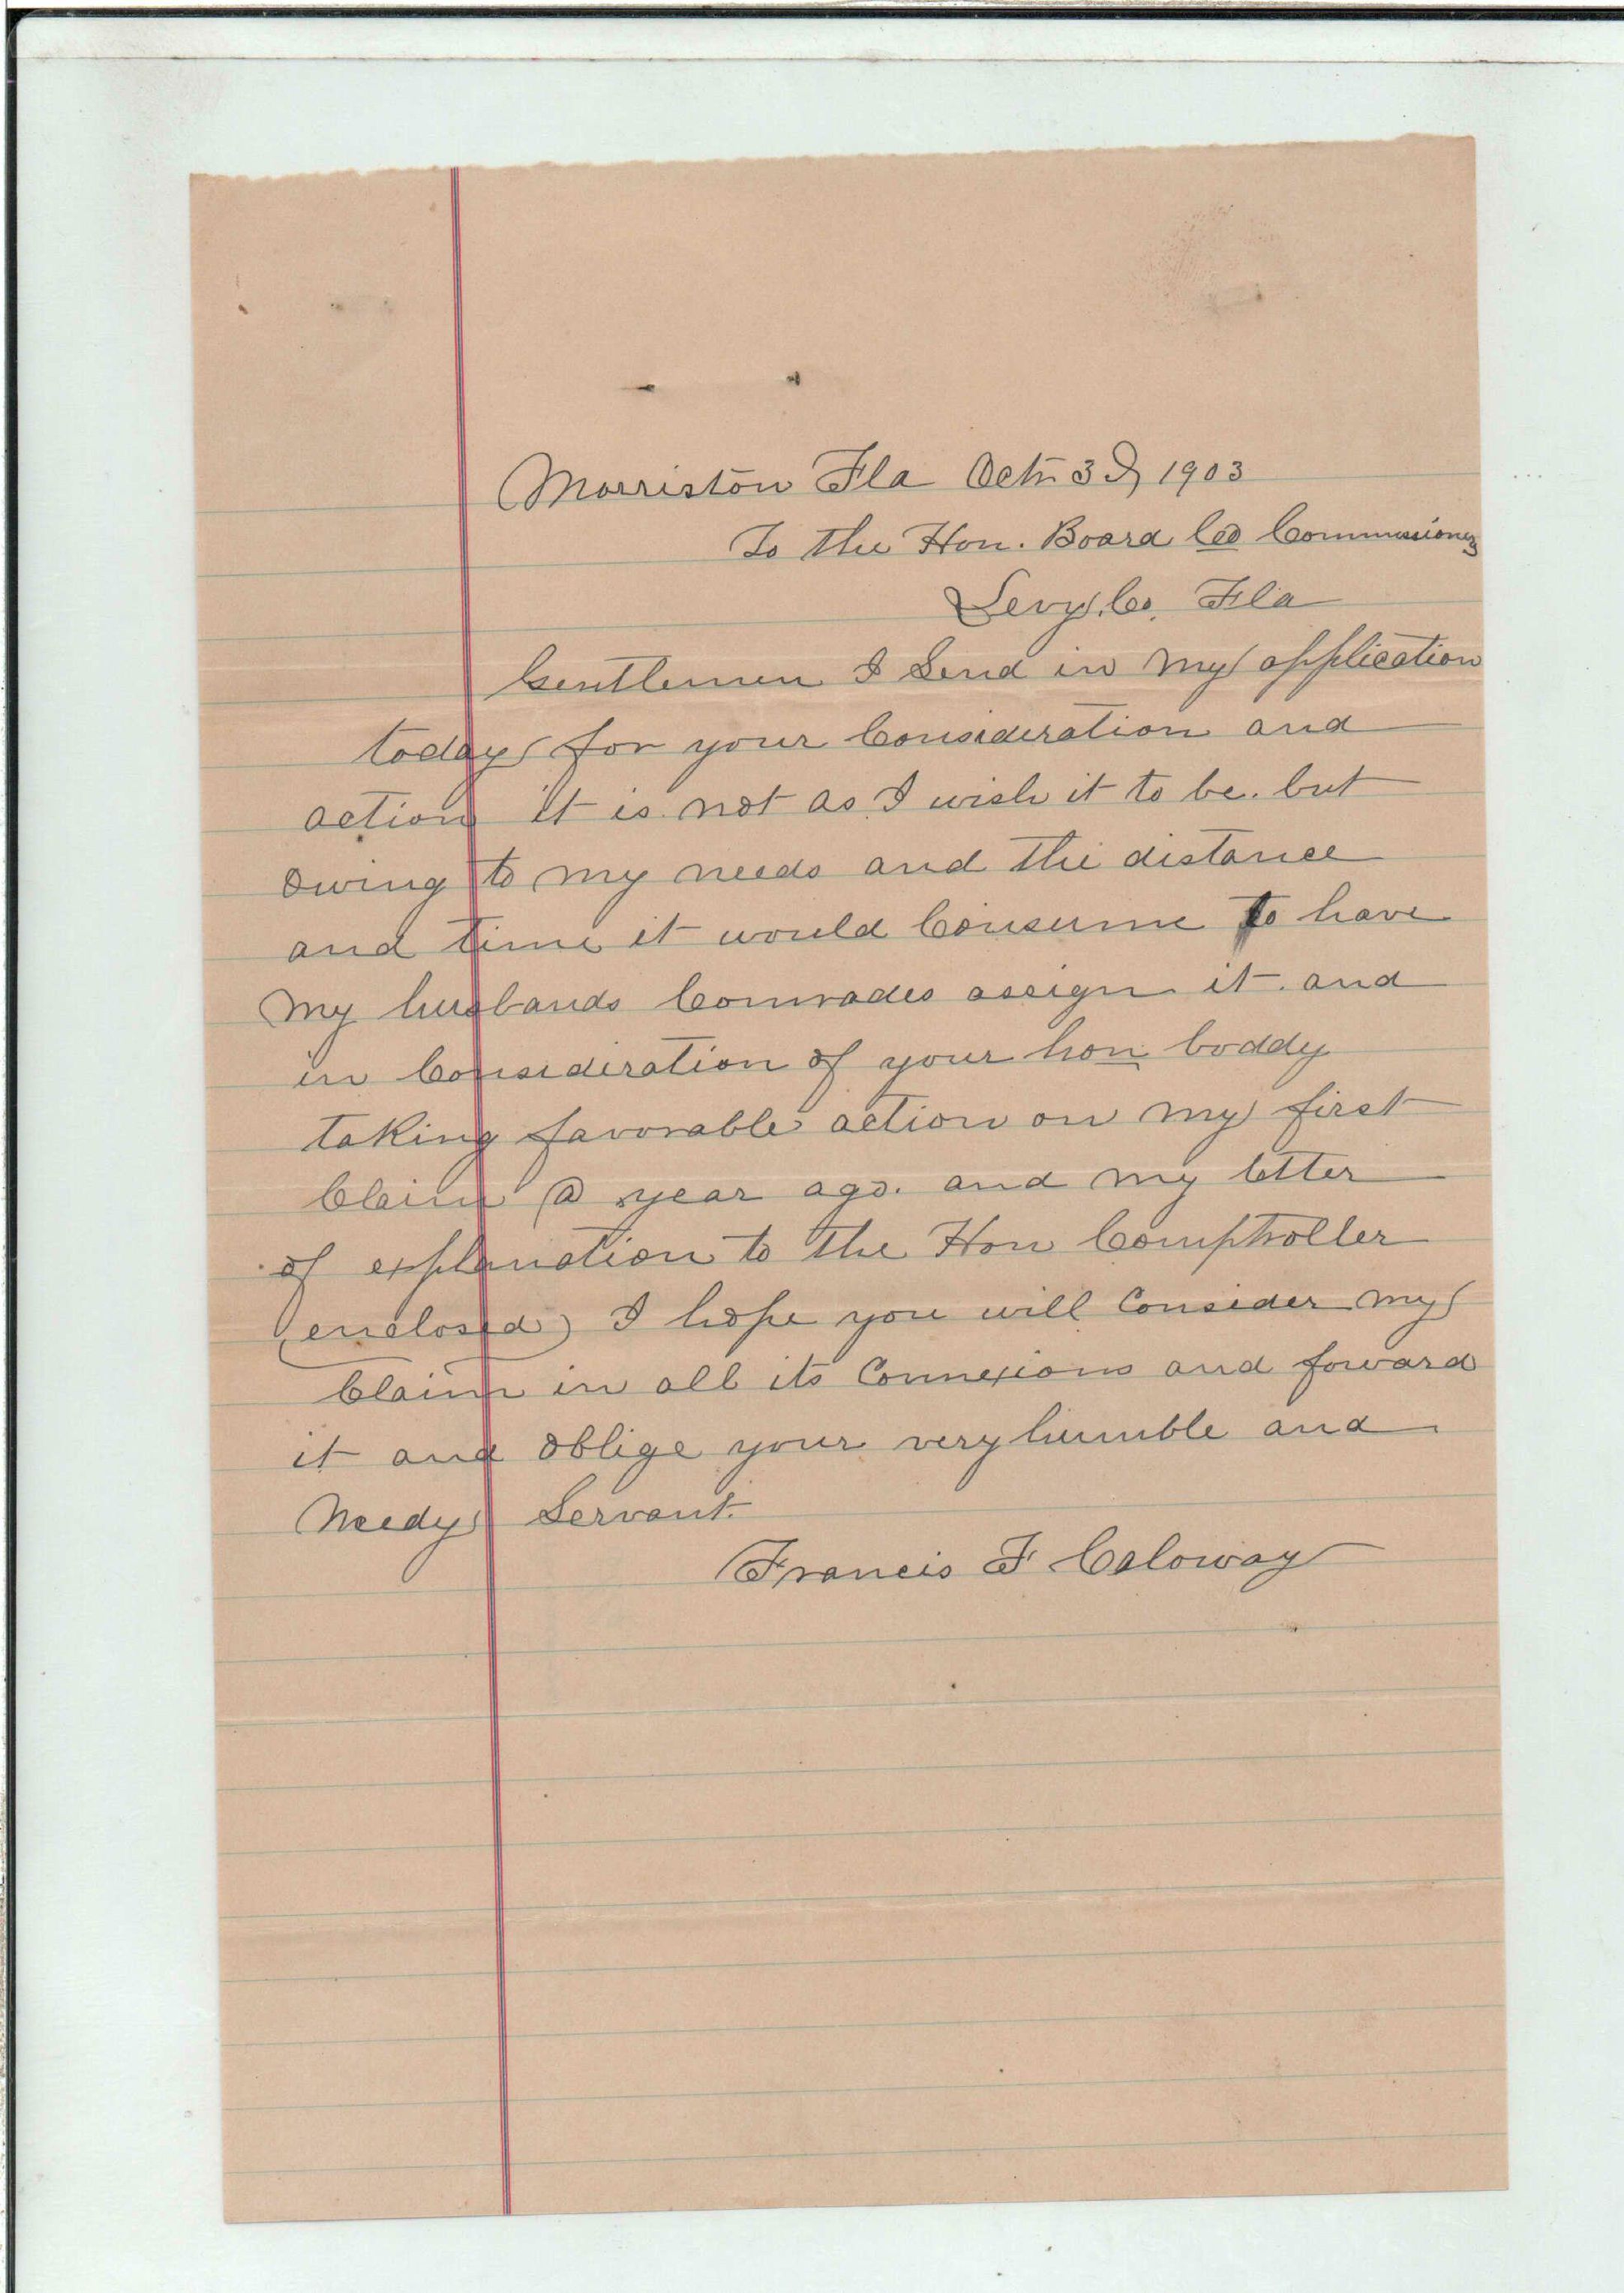 Morriston Fla Octr 3d, 1903
To the Hon. Board Co Commissioners
Levy, Co, Fla
Gentlemen I Send in My application
today for your Consideration and
action it is not as I wish it to be. but
owing to my needs and the distance
and time it would Consume to have
my husbands Comrades assign it. and
in Consideration of your hon boddy
taking favorable action on my first
Claim a year ago. and my letter
of explanation to the Hon Comptroller
(enclosed) I hope you will Consider my
Claim in all its Connexions and forward
it and oblige your very humble and
Needy Servant.
Francis F Caloway